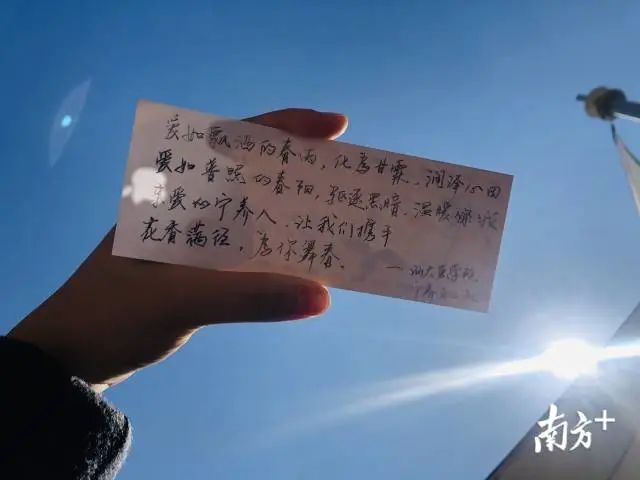 爱如飘洒的春雨，化为甘霖，润泽心田
爱如普照的春阳，驱逐黑暗，温暖
亲爱的宁养人，让我们携手
花香满径，为你舞春。
——汕大医学院
南方+